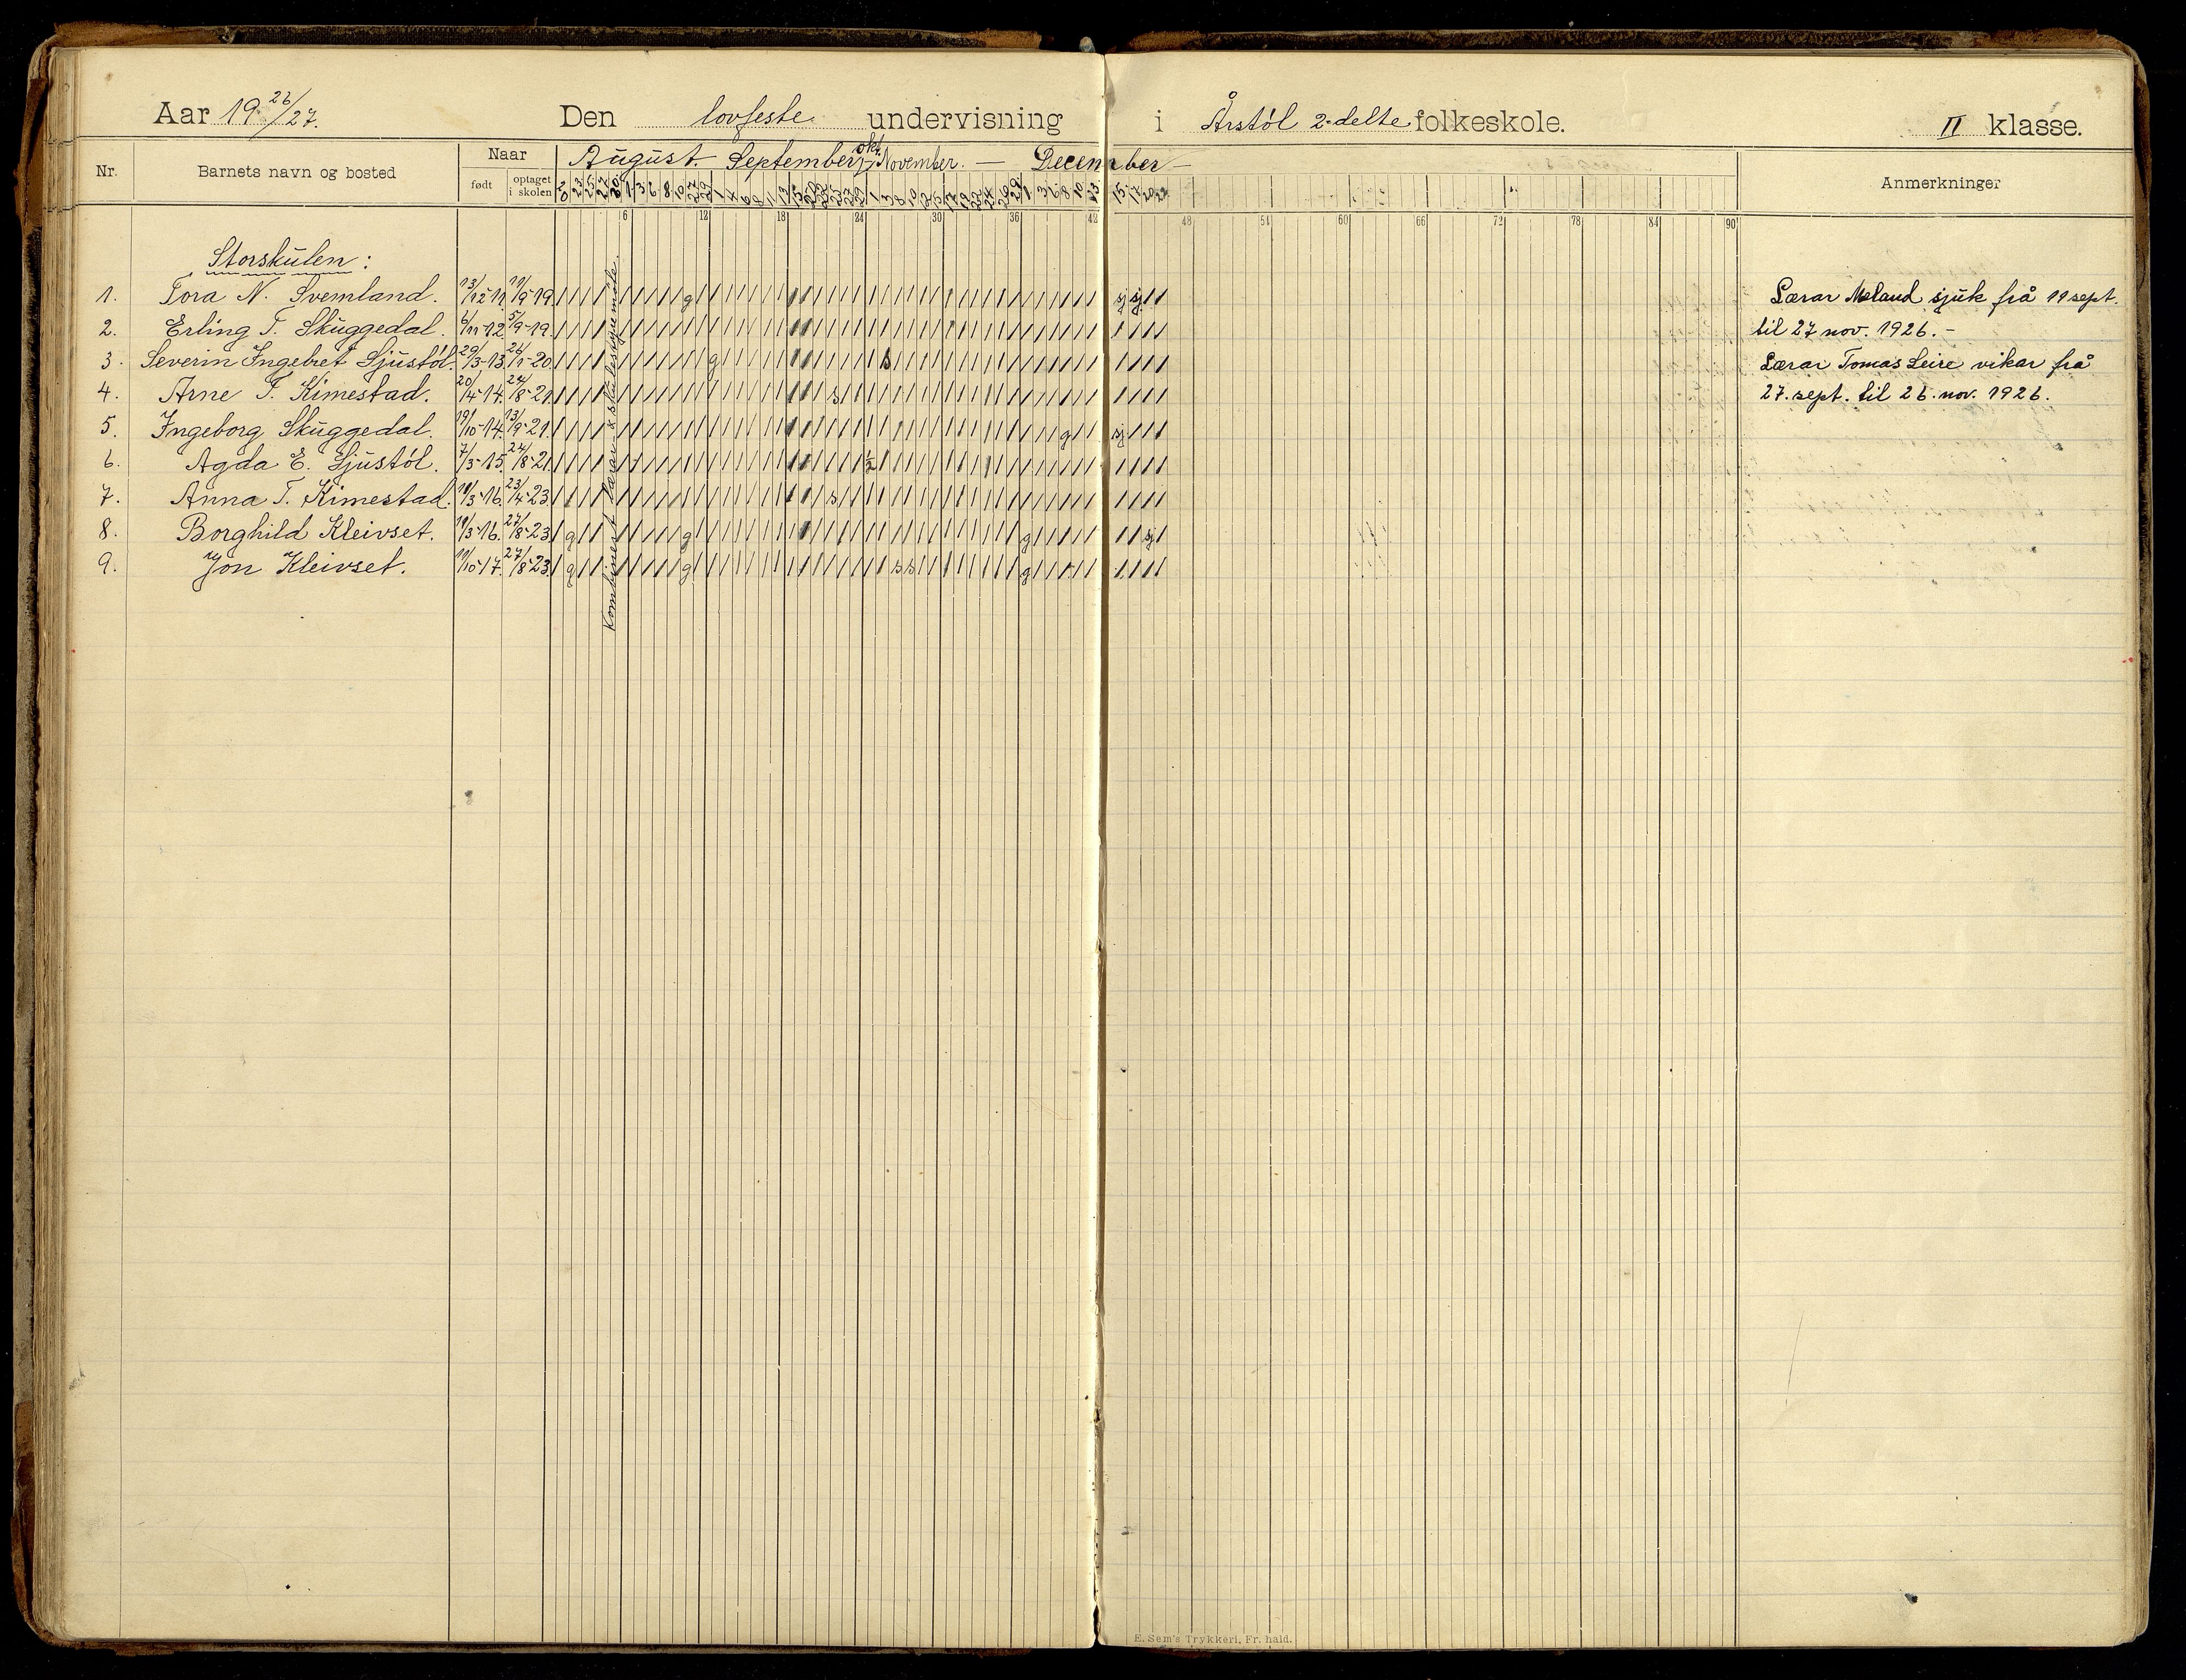 Aar 19 26/27. Den lovfeste undervisning i Årstöl 2-delte folkeskole. II klasse.
Nr. Barnets navn og bosted Naar født optaget i skolen August. September okt. November. — December — Anmerkninger
6 12 18 24 30 36 42 48 54 60 66 72 78 84 90
Storskulen :
1. Tora N. Svemland. 13/12-11. 19-19 Lærar Meland sjuk frå 11 sept.
2. Erling T. Skuggedal. 6/11-12. 5/9-19. til 27 nov. 1926. -
3. Severin Ingebret Ljustöl. 29/3-13. 26/1-20 Lærar Tomas Leire vikar frå
4. Arne T. Kimestad. 20/4-14. 24/8-21 27. sept. til 26. nov. 1926.
5. Ingeborg Skuggedal. 19/10-14. 13/9-21.
6. Agda E. Ljustöl. 7/3-15. 24/8-21.
7. Anna T. Kimestad. 19/3-16. 23/4-23.
8. Borghild Kleivset. 19/3-16. 27/8-23
9. Jon Kleivset. 11/10-17. 27/8-23.
Kombinert lærar- & skulestyremöte.
E. Sem's Trykkeri, Fr. hald.